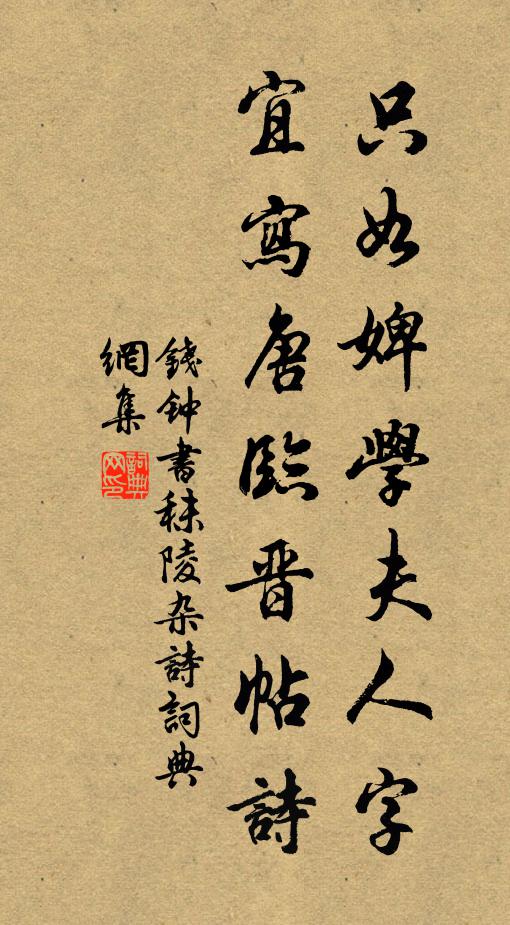 只如婢學夫人字
宜寫唐臨晋帖詩
錢钟書秣陵杂詩詞典
網集
詞典
网印